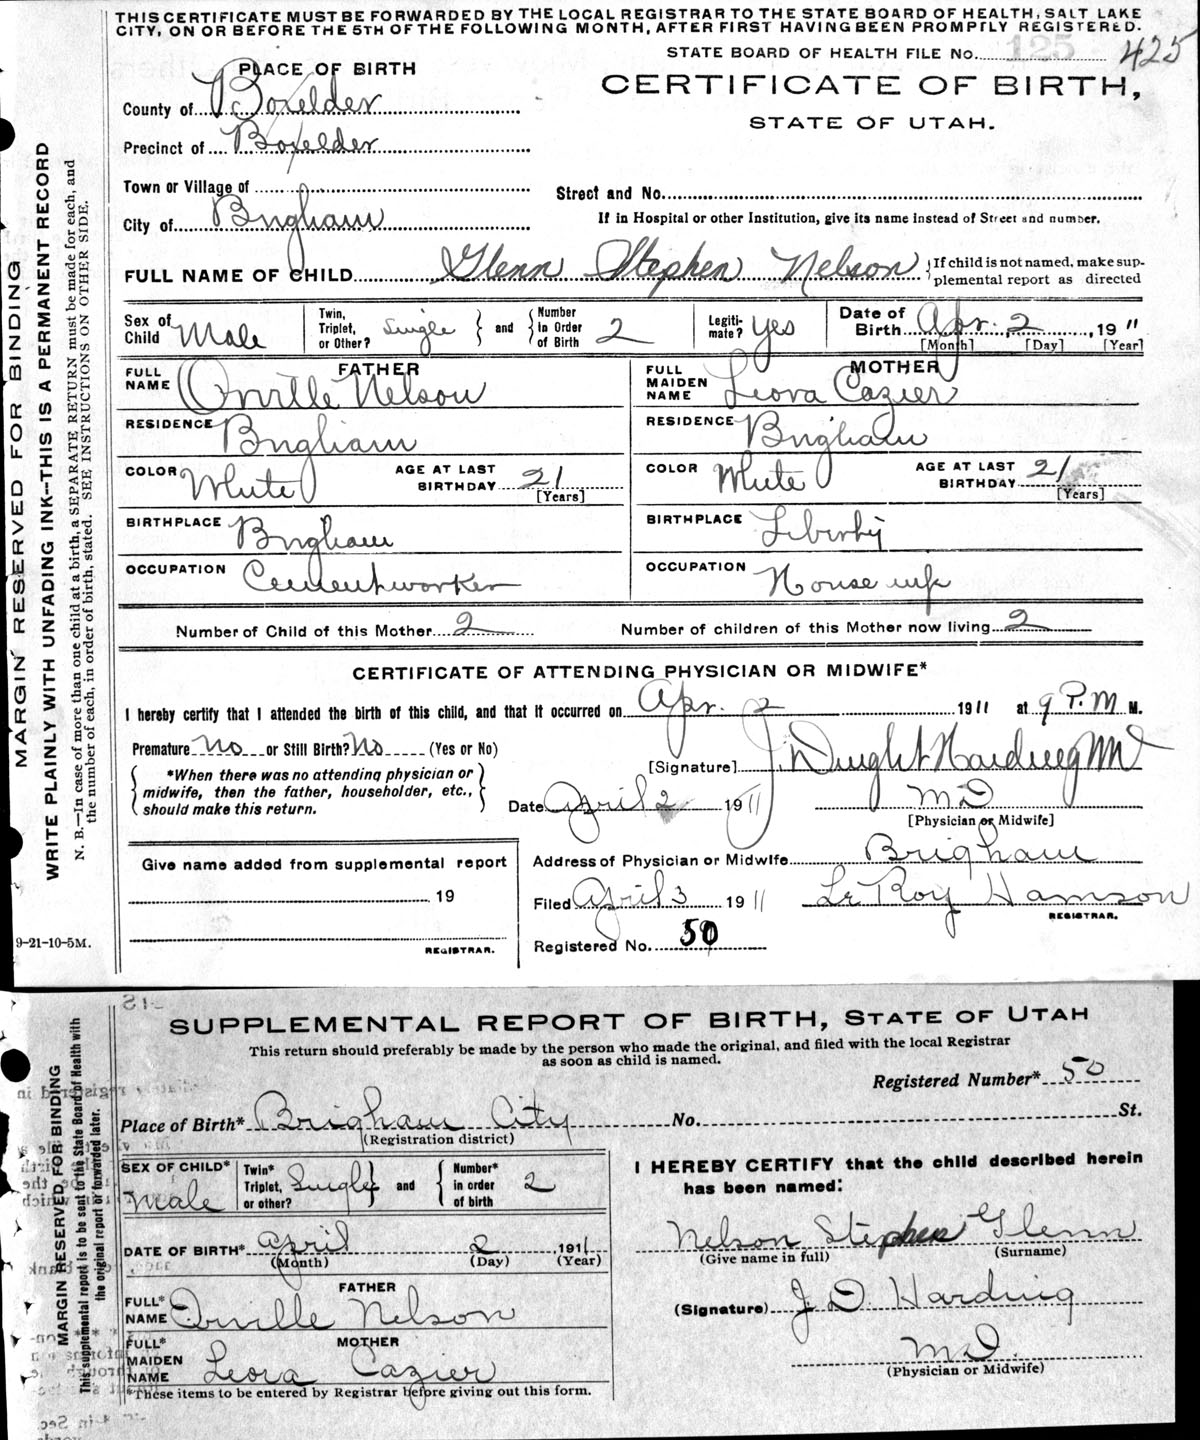 THIS CERTIFICATE MUST BE FORWARDED BY THE LOCAL REGISTRAR TO THE STATE BOARD OF HEALTH, SALT LAKE
CITY, ON OR BEFORE THE 5TH OF THE FOLLOWING MONTH, AFTER FIRST HAVING BEEN PROMPTLY REGISTERED.
STATE BOARD OF HEALTH FILE No. 125 425
PLACE OF BIRTH
CERTIFICATE OF BIRTH,
STATE OF UTAH.
County of Boxelder
Precinct of Boxelder
Town or Village of
Street and No.
City of Brigham
If in Hospital or other Institution, give its name instead of Street and number.
FULL NAME OF CHILD Glenn Stephen Nelson { If child is not named, make sup-
plemental report as directed
Sex of Child Male
Twin, Triplet, or Other? Single } and { Number in Order of Birth 2
Legiti-mate? Yes
Date of Birth Apr. 2, 1911
[Month] [Day] [Year]
FATHER
FULL NAME Orville Nelson
MOTHER
FULL MAIDEN NAME Leora Cazier
RESIDENCE Brigham
RESIDENCE Brigham
COLOR White AGE AT LAST BIRTHDAY 21 [Years]
COLOR White AGE AT LAST BIRTHDAY 21 [Years]
BIRTHPLACE Brigham
BIRTHPLACE Liberty
OCCUPATION Cementworker
OCCUPATION Housewife
Number of Child of this Mother 2 Number of children of this Mother now living 2
CERTIFICATE OF ATTENDING PHYSICIAN OR MIDWIFE*
I hereby certify that I attended the birth of this child, and that it occurred on Apr. 2 1911 at 9 P.M M.
Premature No or Still Birth? No (Yes or No)
[Signature] J. Dwight Harding MD
{ *When there was no attending physician or
midwife, then the father, householder, etc.,
should make this return. }
Date April 2 1911 MD
[Physician or Midwife]
Give name added from supplemental report
19
REGISTRAR.
Address of Physician or Midwife Brigham
Filed April 3 1911 Le Roy Hamson
REGISTRAR.
Registered No. 50
9-21-10-5M.
MARGIN RESERVED FOR BINDING
WRITE PLAINLY WITH UNFADING INK--THIS IS A PERMANENT RECORD
N. B.—In case of more than one child at a birth, a SEPARATE RETURN must be made for each, and
the number of each, in order of birth, stated. SEE INSTRUCTIONS ON OTHER SIDE.
SUPPLEMENTAL REPORT OF BIRTH, STATE OF UTAH
This return should preferably be made by the person who made the original, and filed with the local Registrar
as soon as child is named.
Registered Number* 50
Place of Birth* Brigham City No. St.
(Registration district)
SEX OF CHILD* Male
Twin* Triplet, or other? Single } and { Number* in order of birth 2
I HEREBY CERTIFY that the child described herein
has been named:
Nelson Stephen Glenn
(Give name in full) (Surname)
DATE OF BIRTH* April 2 1911
(Month) (Day) (Year)
FATHER
FULL* NAME Orville Nelson
(Signature) J. D. Harding
MOTHER
FULL* MAIDEN NAME Leora Cazier
MD.
(Physician or Midwife)
*These items to be entered by Registrar before giving out this form.
MARGIN RESERVED FOR BINDING
This supplemental report is to be sent to the State Board of Health with
the original report or forwarded later.